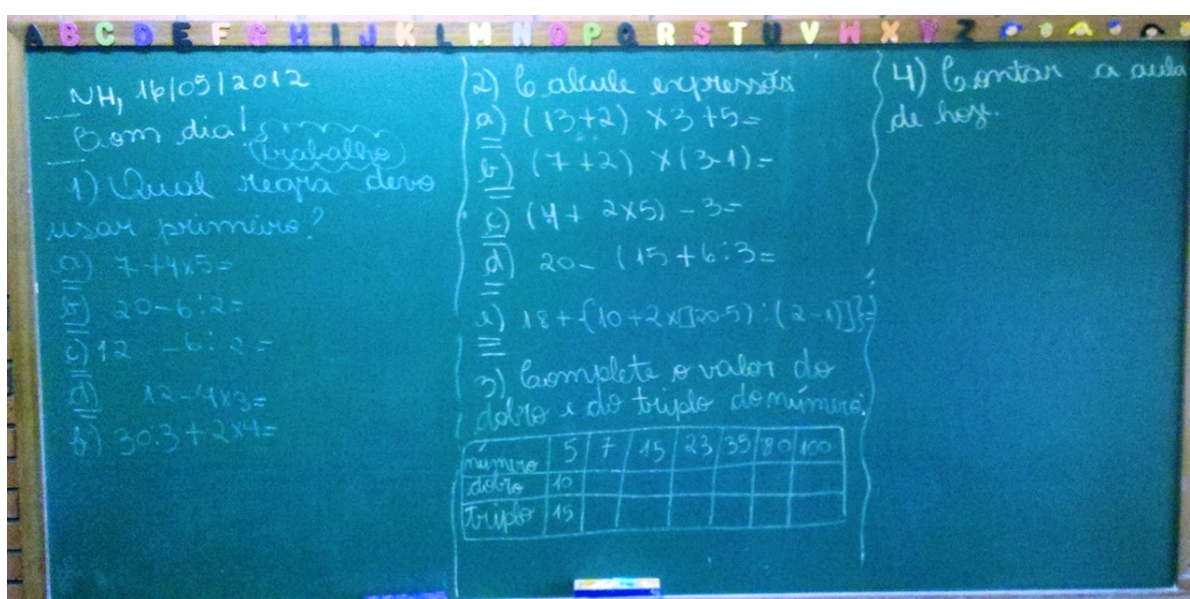 A B C D E F G H I J K L M N O P Q R S T U V W X Y Z
NH, 16/05/2012
Bom dia!
Trabalho
1) Qual regra devo
usar primeiro?
a) 7+4x5=
b) 20-6:2=
c) 12 -6:2=
d) 12-4x3=
f) 30:3+2x4=
2) Calcule expressões
a) (13+2) x3+5=
b) (7+2) x(3-1)=
c) (4+ 2x5) -3=
d) 20- (15+6:3=
e) 18+{10+2x[]20-5):(2-1)]]}=
3) Complete o valor do
dobro e do triplo do número.
número 5 7 15 23 35 80 100
dobro 10
triplo 15
4) Contar a aula
de hoje.